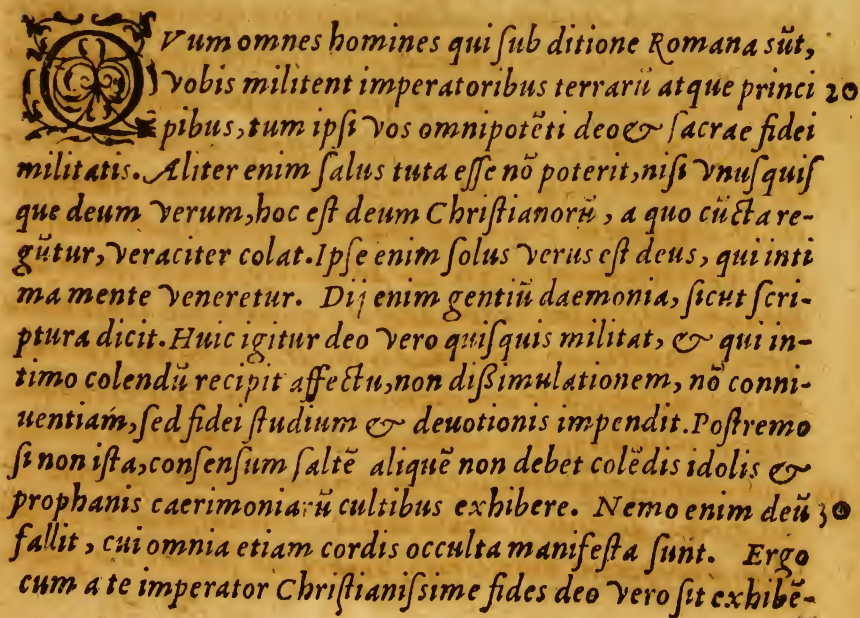 QVum omnes homines qui ſub ditione Romana sũt,
vobis militent imperatoribus terrarũ atque princi 20
pibus, tum ipſi vos omnipotẽti deo & ſacrae fidei
militatis. Aliter enim ſalus tuta eſſe nõ poterit, niſi vnuſquiſ
que deum verum, hoc eſt deum Chriſtianorũ, a quo cũcta re-
gũtur, veraciter colat. Ipſe enim ſolus verus eſt deus, qui inti
ma mente veneretur. Dij enim gentiũ daemonia, ſicut ſcri-
ptura dicit. Huic igitur deo vero quiſquis militat, & qui in-
timo colendũ recipit affectu, non diſsimulationem, nõ conni-
uentiam, ſed fidei ſtudium & deuotionis impendit. Poſtremo
ſi non iſta, conſenſum ſaltẽ aliquẽ non debet colẽdis idolis &
prophanis caerimoniarũ cultibus exhibere. Nemo enim deũ 30
fallit, cui omnia etiam cordis occulta manifeſta ſunt. Ergo
cum a te imperator Chriſtianiſsime fides deo vero ſit exhibẽ-